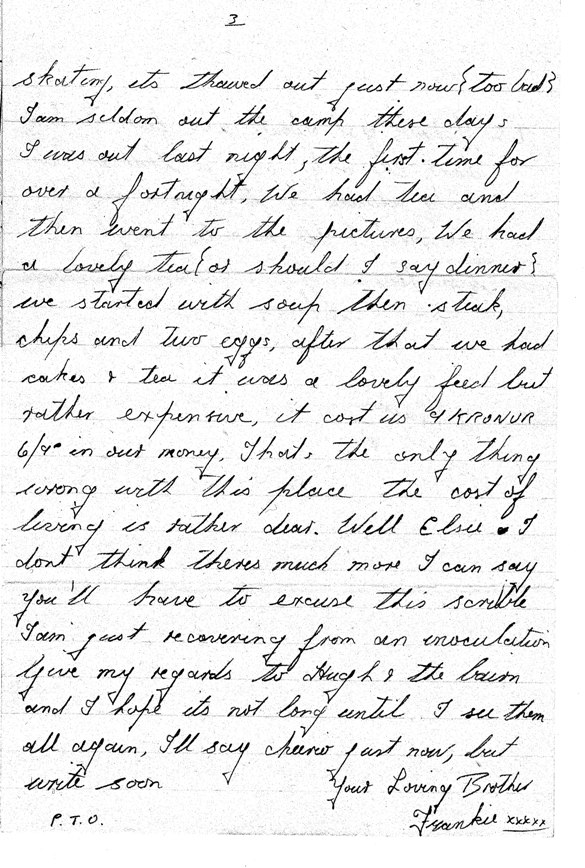 3
skating, its thawed out just now {too bad}
I am seldom out the camp these days
I was out last night, the first time for
over a fortnight, We had tea and
then went to the pictures, We had
a lovely tea {or should I say dinner}
we started with soup then steak,
chips and two eggs, after that we had
cakes & tea it was a lovely feed but
rather expensive, it cost us 9 KRONUR
6/9ᴰ in our money. Thats the only thing
wrong with this place the cost of
living is rather dear. Well Elsie I
dont think theres much more I can say
you'll have to excuse this scribble
I am just recovering from an inoculation
Give my regards to Hugh & the bairn
and I hope its not long until I see them
all again, I'll say cheerio just now, but
write soon Your Loving Brother
P.T.O. Frankie xxxxx